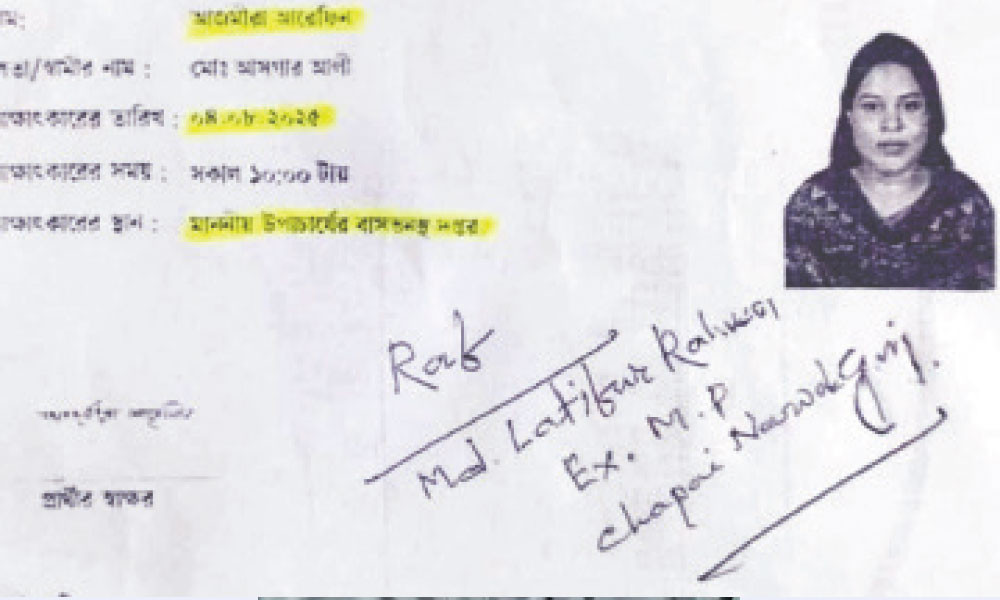 নাম:
আজমীরা আরেফিন
পিতা/স্বামীর নাম :
মোঃ আসগার আলী
সাক্ষাৎকারের তারিখ :
০৪.০৮.২০২৫
সাক্ষাৎকারের সময় :
সকাল ১০:০০ টায়
সাক্ষাৎকারের স্থান :
মাননীয় উপাচার্যের বাসভবনস্থ দপ্তর
Md. Latifur Rahman
Ex. M.P
Chapai Nawabgonj.
প্রার্থীর স্বাক্ষর